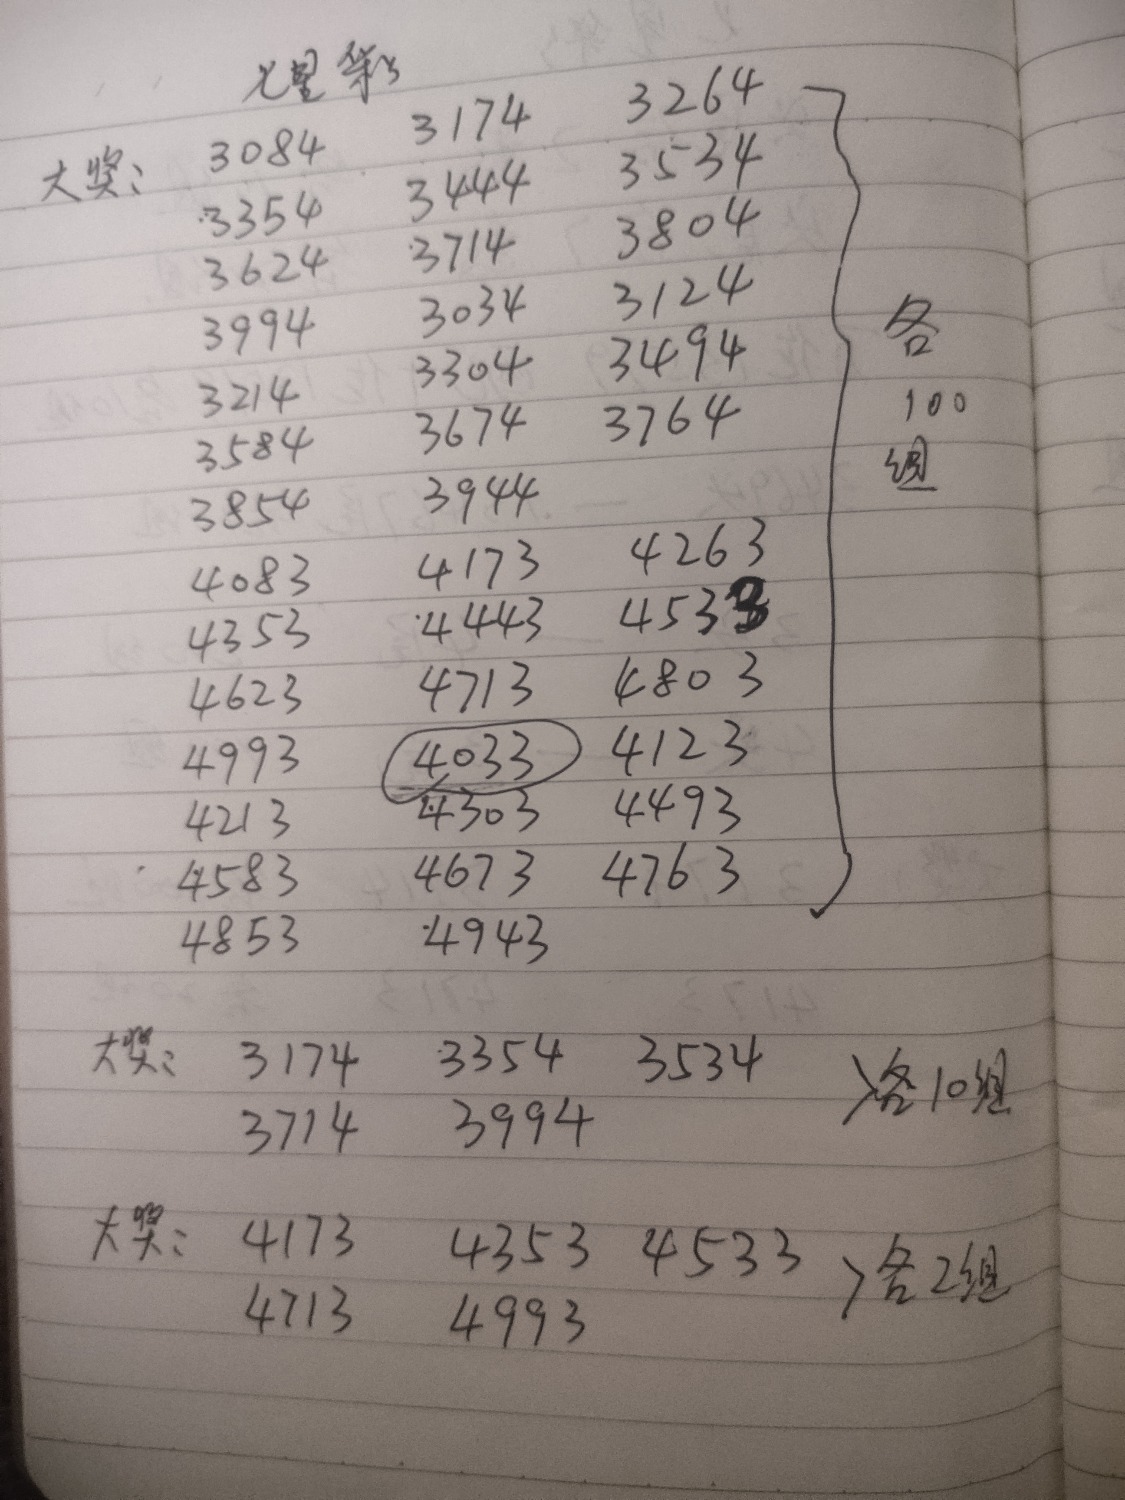 七星彩
大奖: 3084 3174 3264
3354 3444 3534
3624 3714 3804
3994 3034 3124
3214 3304 3494
3584 3674 3764
3854 3944
各
100
组
4083 4173 4263
4353 4443 4533
4623 4713 4803
4993 4033 4123
4213 4303 4493
4583 4673 4763
4853 4943
大奖: 3174 3354 3534
3714 3994 各10组
大奖: 4173 4353 4533
4713 4993 各2组